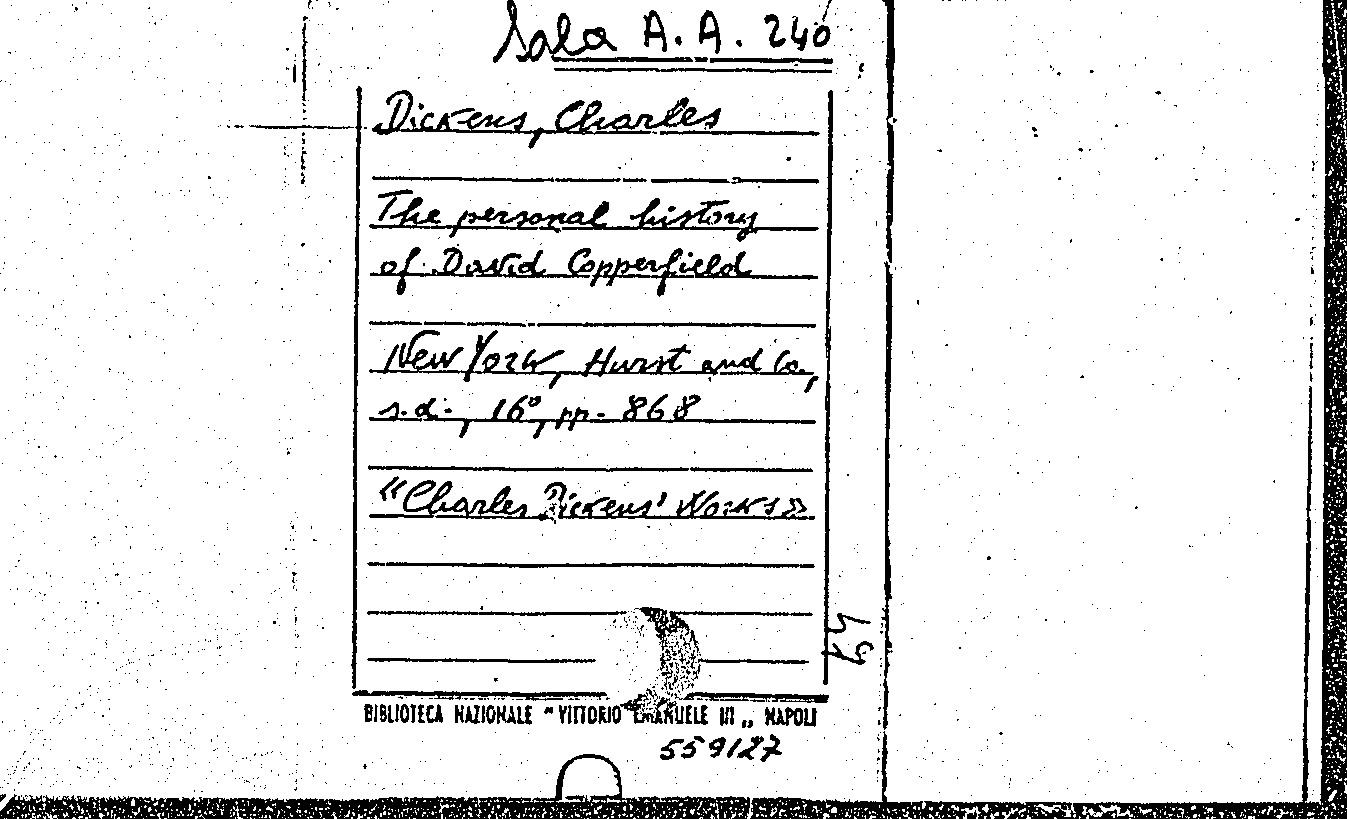 Sala A.A. 240
Dickens, Charles
The personal history
of David Copperfield
New York, Hurst and Co.,
s.d., 16°, pp. 868
«Charles Dickens' Works»
BIBLIOTECA NAZIONALE "VITTORIO EMANUELE III„ NAPOLI
559127